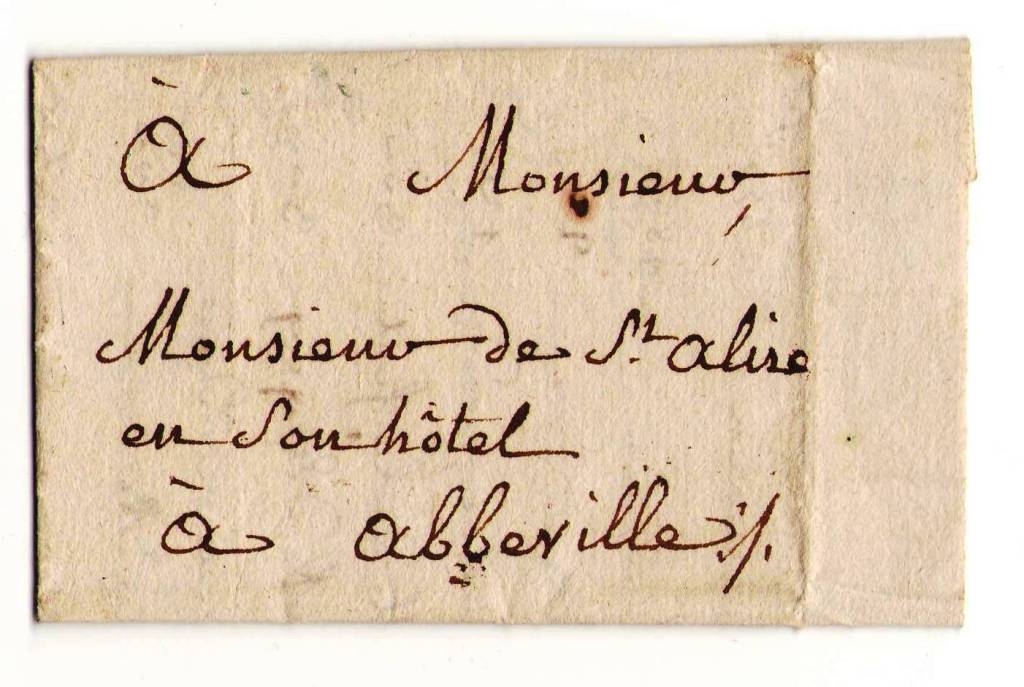 À Monsieur,
Monsieur de St. alire
en Son hôtel
à abbeville ./.